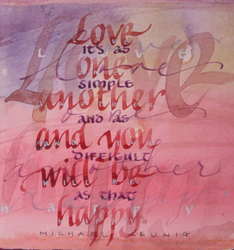 Love
it's as
one
simple
another
and as
and you
difficult
will be
as that
happy.
MICHAEL LEUNIG